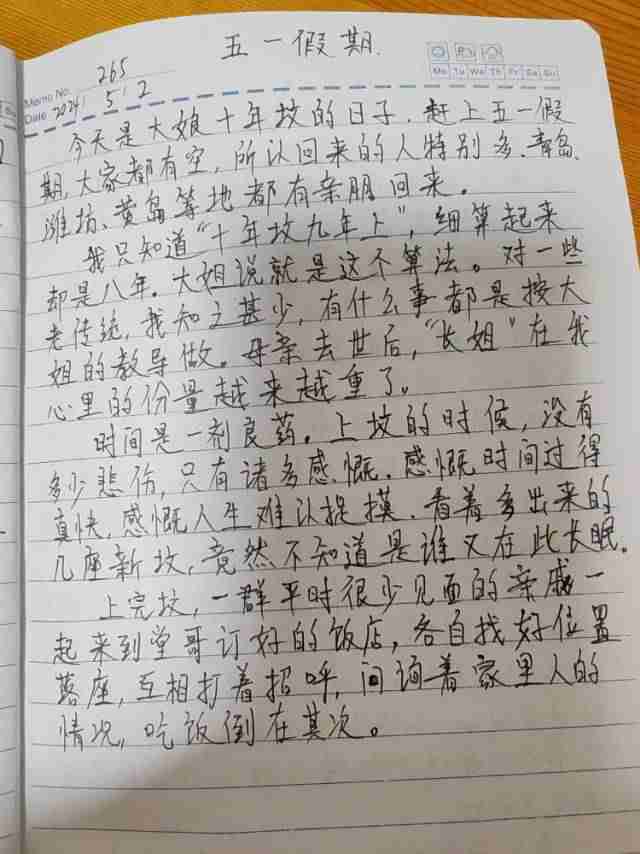 五一假期.
Memo No. 265
Mo Tu We Th Fr Sa Su
Date 2024 / 5 / 2
今天是大娘十年坟的日子.赶上五一假
期,大家都有空,所以回来的人特别多.青岛、
潍坊、黄岛等地都有亲朋回来。
我只知道“十年坟九年上”,细算起来
却是八年.大姐说就是这个算法。对一些
老传统,我知之甚少,有什么事都是按大
姐的教导做。母亲去世后,“长姐”在我
心里的份量越来越重了。
时间是一剂良药.上坟的时候,没有
多少悲伤,只有诸多感慨.感慨时间过得
真快,感慨人生难以捉摸.看着多出来的
几座新坟,竟然不知道是谁又在此长眠。
上完坟,一群平时很少见面的亲戚一
起来到堂哥订好的饭店,各自找好位置
落座,互相打着招呼,问询着家里人的
情况,吃饭倒在其次。